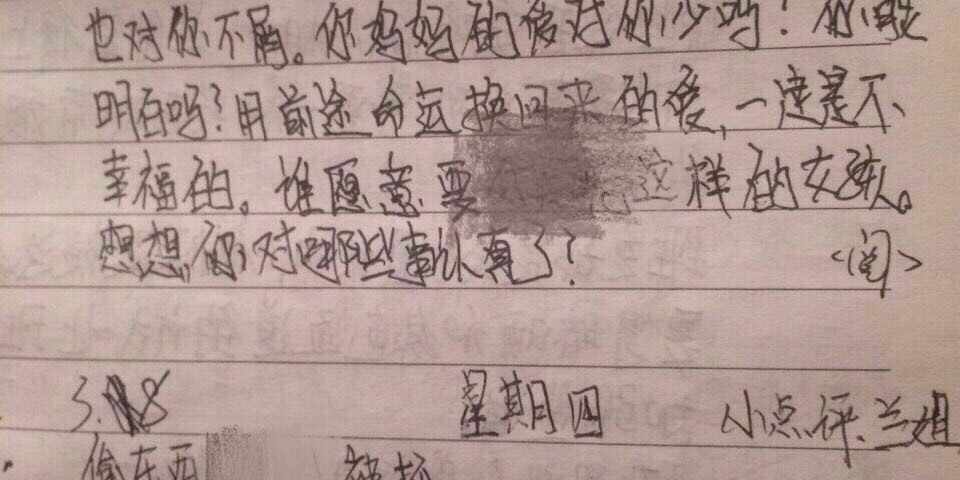 也对你不屑。你妈妈的爱对你少吗？你
明白吗？用前途命运换回来的爱，一定是不
幸福的。谁愿意要 这样的女孩。
想想，你对哪些事认真了？ <阅>
3. 8 星期四 小点评、兰姐
偷东西 被坏